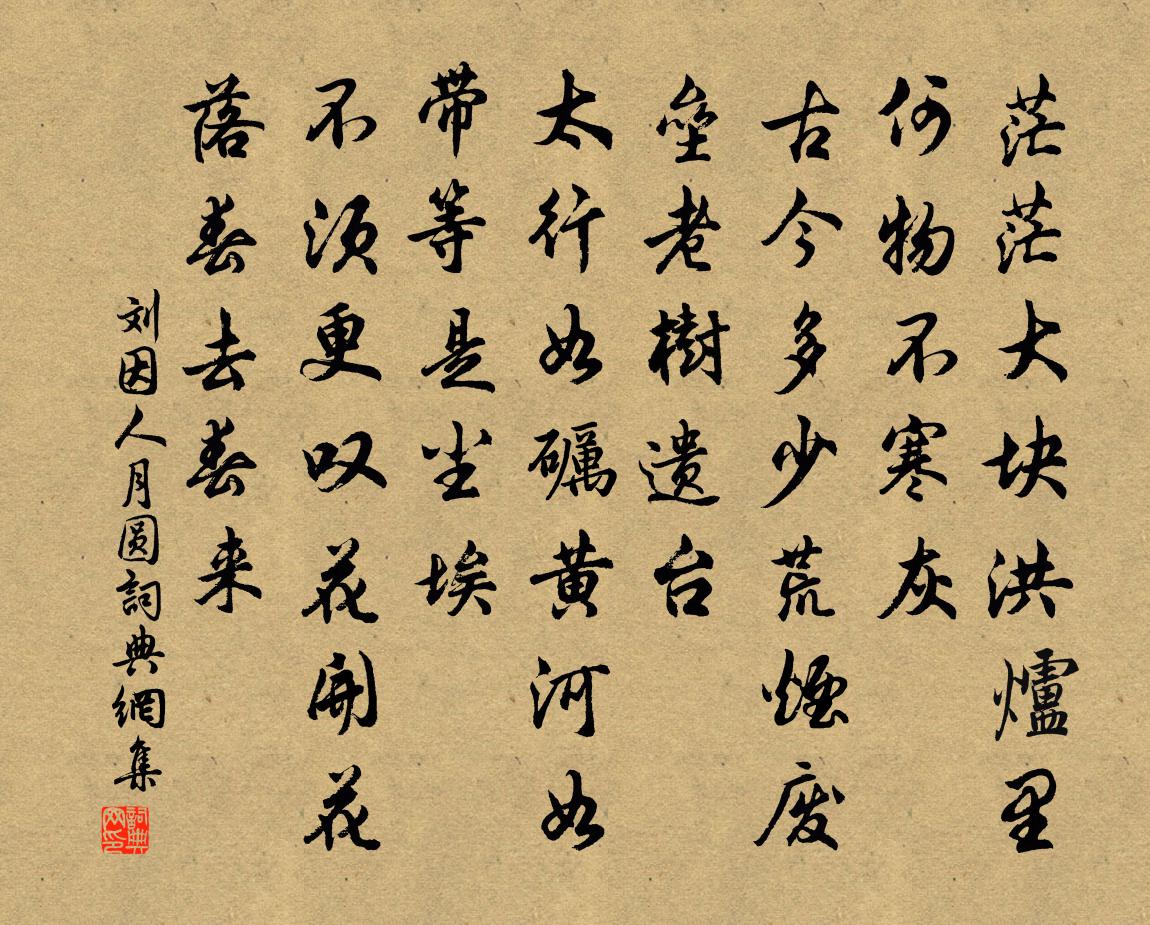 茫茫大块洪爐里
何物不寒灰
古今多少荒煙废
垒老樹遗台
太行如礪黄河如
带等是尘埃
不须更叹花開花
落春去春来
刘因人月圆詞典網集
詞典网印